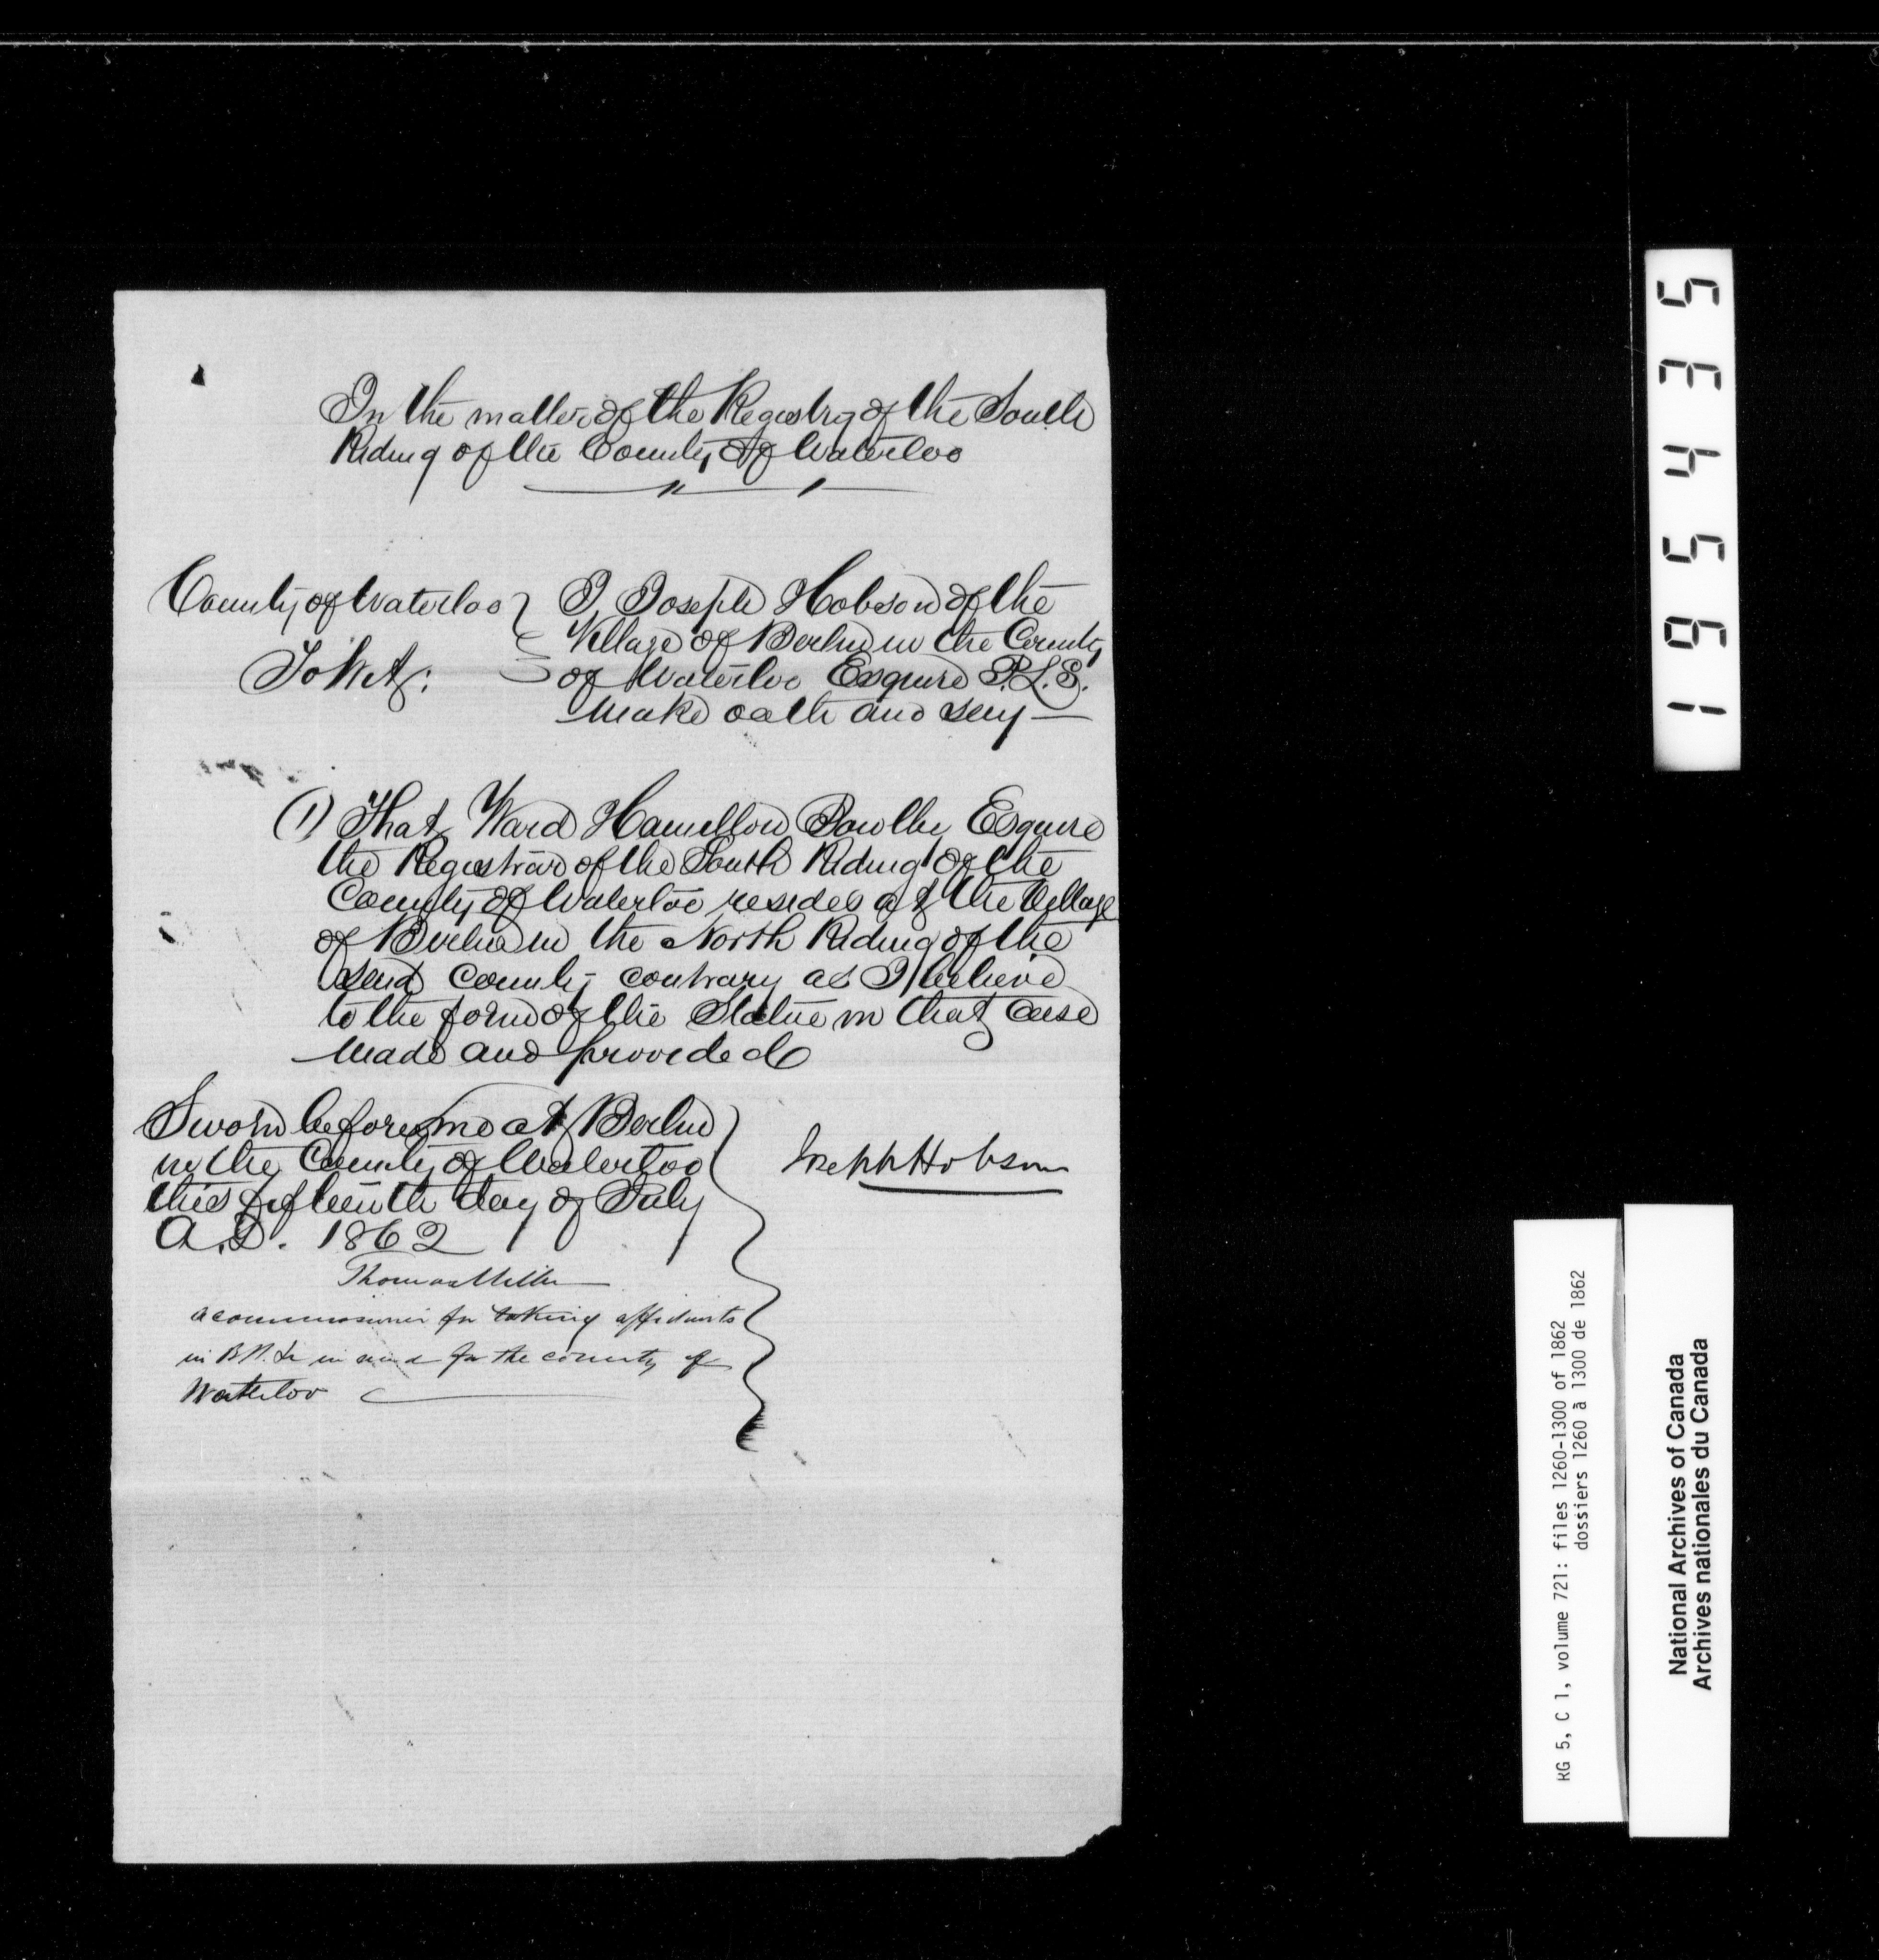 In the matter of the Registry of the South
Riding of the County of Waterloo
County of Waterloo
To Wit:
I, Joseph Hobson of the
Village of Berlin in the County
of Waterloo Esquire P.L.S.
Make oath and say
(1) That Ward Hamilton Bowlby Esquire
the Registrar of the South Riding of the
County of Waterloo resides at the Village
of Berlin in the North Riding of the
said County contrary as I believe
to the form of the Statue in that case
made and provided
Sworn before me at Berlin
in the County of Waterloo
this fifteenth day of July
A.D. 1862
Joseph Hobson
Thomas Miller
a commissioner for taking affidavits
in B.R. &c in and for the county of
Waterloo
195435
RG 5, C 1, volume 721: files 1260-1300 of 1862
dossiers 1260 à 1300 de 1862
National Archives of Canada
Archives nationales du Canada